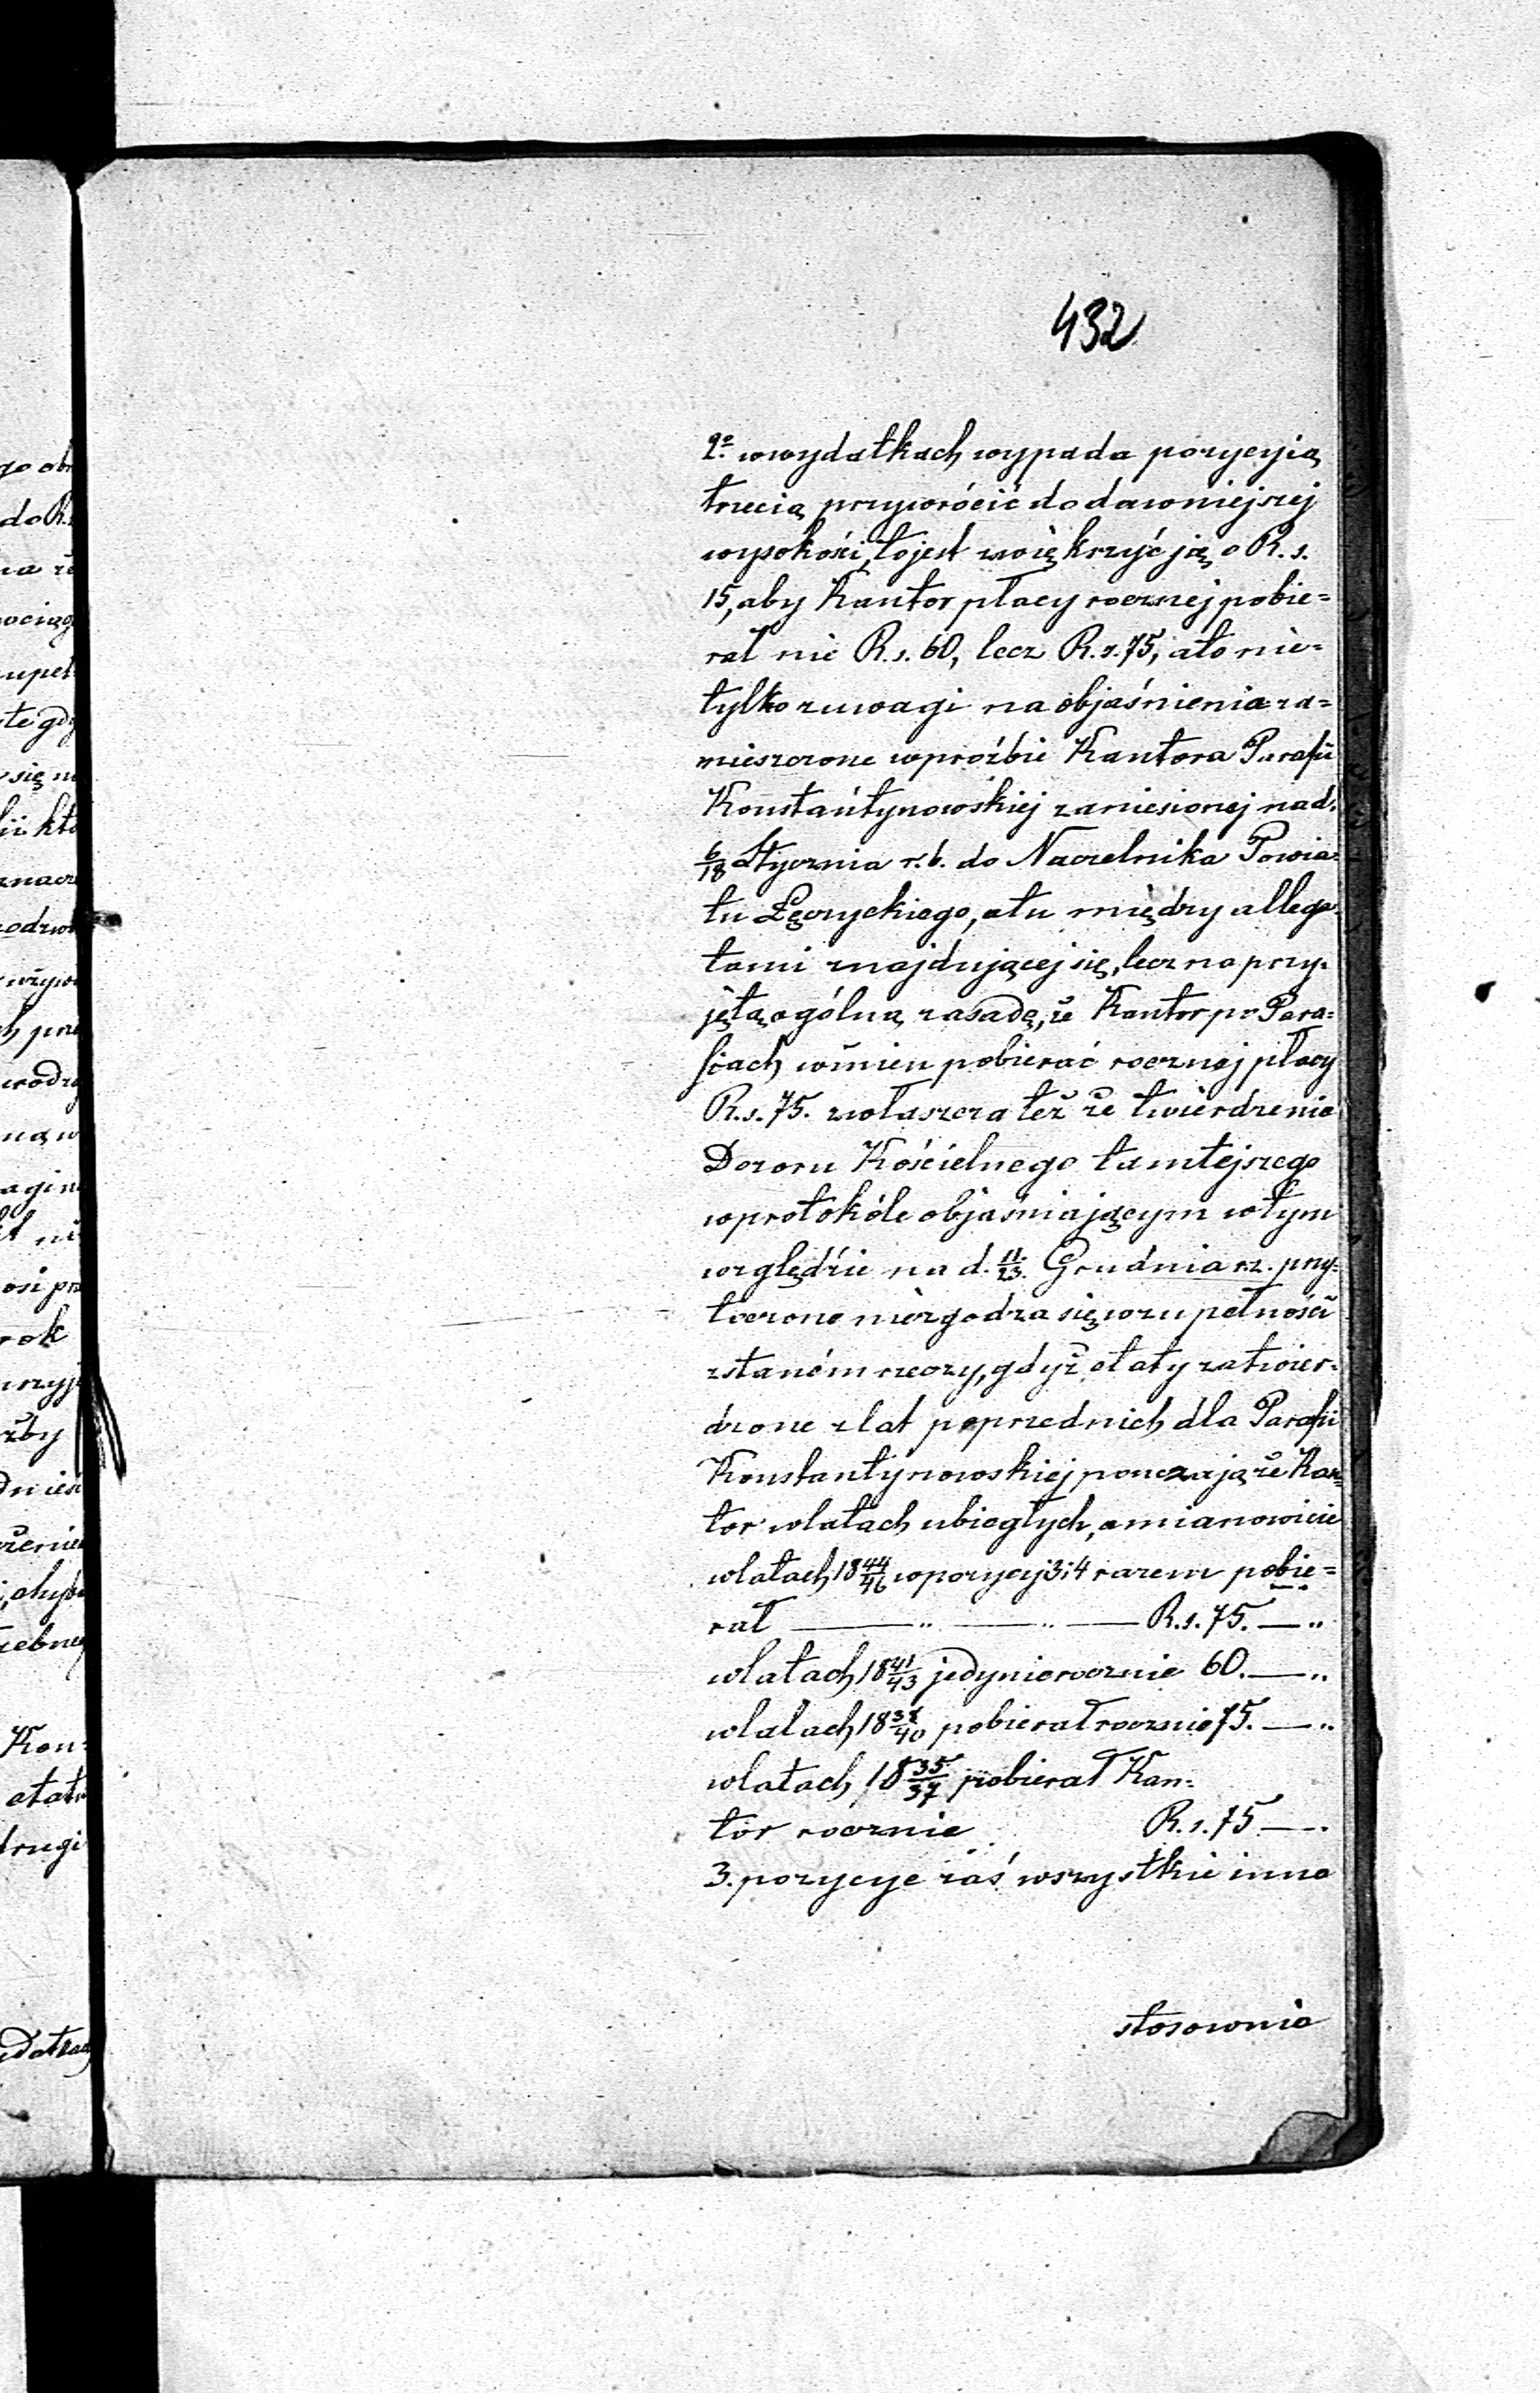 432
2º wwydatkach wypada pozycyią
trzecią przywrócić do dawniejszej
wysokości, tojest zwiększyć ją o R. s.
15, aby Kantor płacy rocznej pobie=
rał nie R. s. 60, lecz R. s. 75, ato nie=
tylko zuwagi na objaśnienia za=
mieszczone wproźbie Kantora Parafii
Konstantynowskiej zaniesionej nad.
6/18 Stycznia r. b. do Naczelnika Powia=
tu Łęczyckiego, atu między allega=
tami znajdującej się, lecz na przy=
jętą ogólną zasadę, że Kantor po Para=
fiach winien pobierać rocznej płacy
R. s. 75. zwłaszcza też że twierdzenie
Dozoru Kościelnego tamtejszego
wprotokóle objaśniającym wtym
względzie na d. 11/23. Grudnia rz. przy=
toczone niezgadza się wzupełności
zstanem rzeczy, gdyż etaty zatwier=
dzone zlat poprzednich dla Parafii
Konstantynowskiej pouczają że Kan=
tor wlatach ubiegłych, amianowicie
wlatach 18 44/46 wpozycyj 3 i 4 razem pobie=
rał — " — " — R. s. 75. — "
wlatach 18 41/43 jedynie rocznie 60. — "
wlatach 18 38/40 pobierał rocznie 75. — "
wlatach 18 35/37 pobierał Kan=
tor rocznie R. s. 75 — .
3. pozycye zaś wszystkie inne
stosownie
go ob
do R.
upeł
te gdy
się n
rok
żby
Kon=
etat
drugi